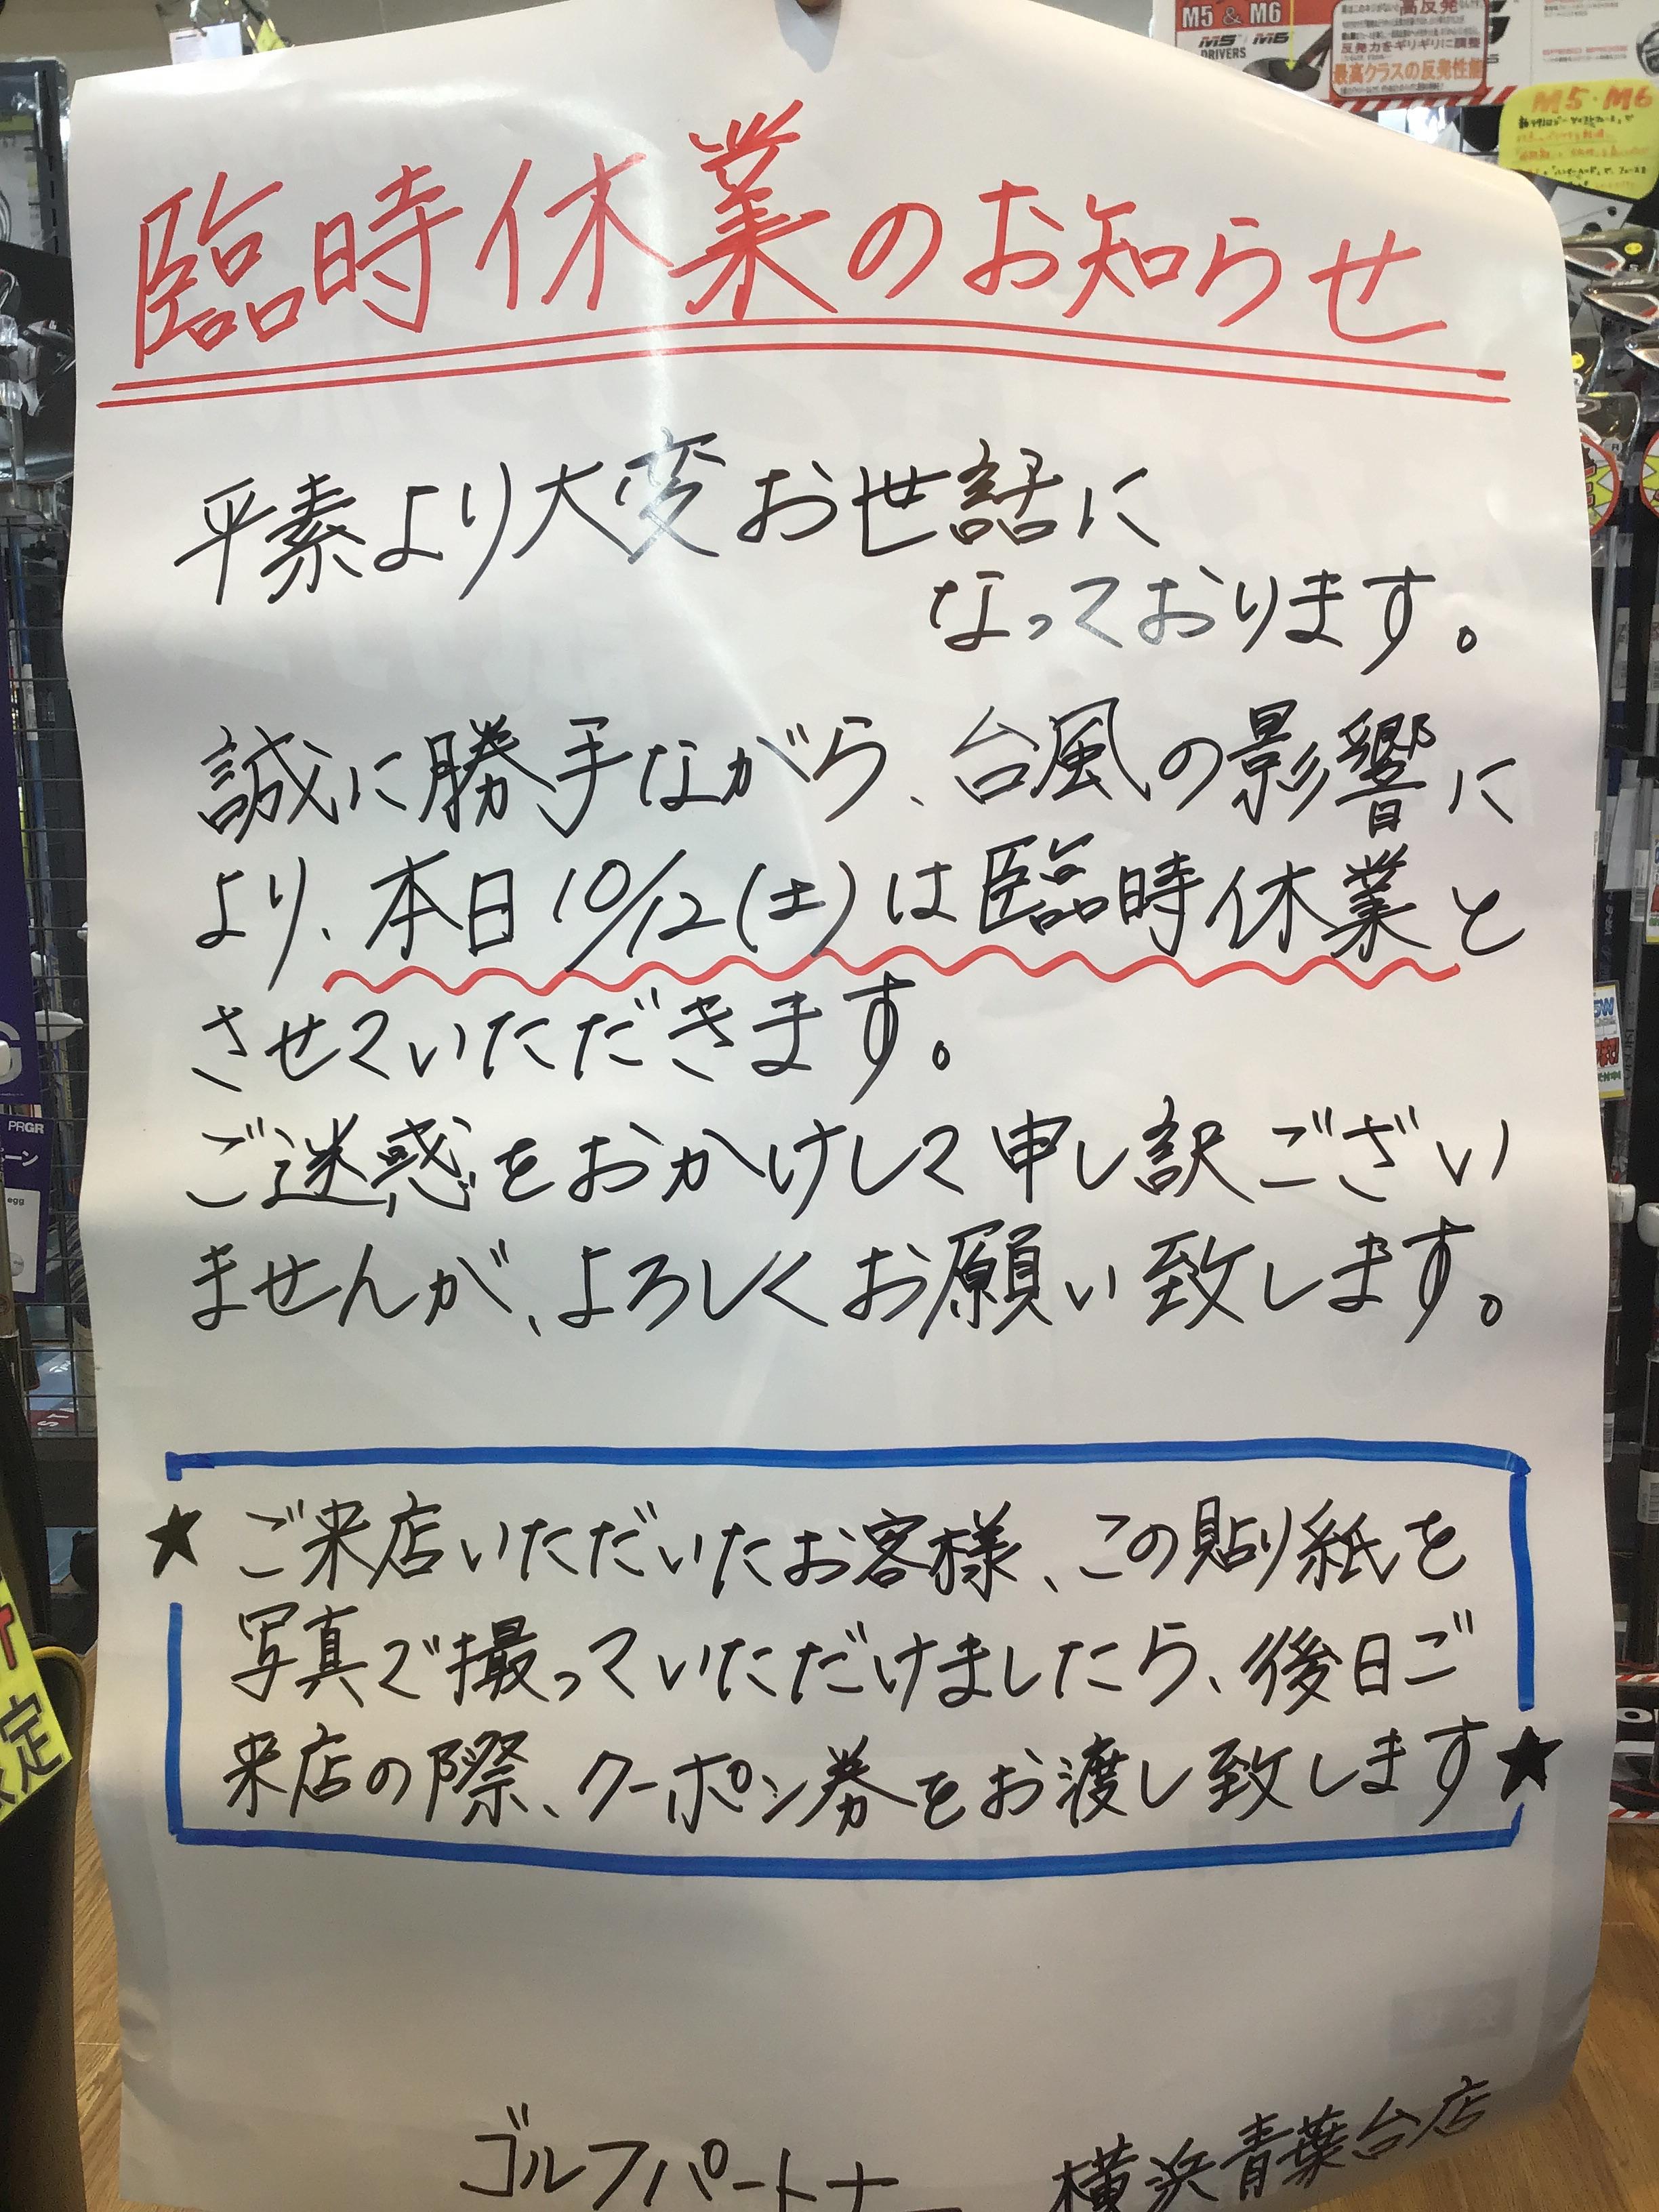 臨時休業のお知らせ
平素より大変お世話に
なっております。
誠に勝手ながら、台風の影響に
より、本日10/12(土)は臨時休業と
させていただきます。
ご迷惑をおかけして申し訳ござい
ませんが、よろしくお願い致します。
★ご来店いただいたお客様、この貼り紙を
写真で撮っていただけましたら、後日ご
来店の際、クーポン券をお渡し致します★
ゴルフパートナー 横浜青葉台店
M5 & M6
M5 M6
DRIVERS
高反発
反発力をギリギリに調整
最高クラスの反発性能
M5・M6
PRGR
egg